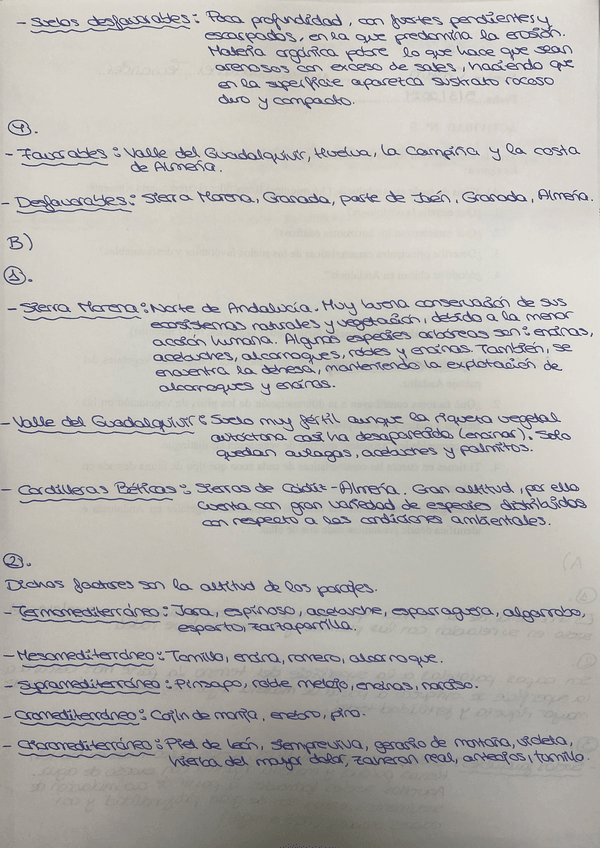 - Suelos desfavorables: Poca profundidad, con fuertes pendientes y
escarpados, en la que predomina la erosión.
Materia orgánica pobre lo que hace que sean
arenosos con exceso de sales, haciendo que
en la superficie aparezca sustrato rocoso
duro y compacto.
4.
- Favorables: Valle del Guadalquivir, Huelva, la Campiña y la costa
de Almería.
- Desfavorables: Sierra Morena, Granada, parte de Jaén, Granada, Almería.
B)
1.
- Sierra Morena: Norte de Andalucía. Muy buena conservación de sus
ecosistemas naturales y vegetación, debido a la menor
acción humana. Algunas especies arbóreas son: encinas,
acebuches, alcornoques, robles y encinas. También, se
encuentra la dehesa, manteniendo la explotación de
alcornoques y encinas.
- Valle del Guadalquivir: Suelo muy fértil aunque la riqueza vegetal
autóctona casi ha desaparecido (encinar). Solo
quedan aulagas, acebuches y palmitos.
- Cordilleras Béticas: Sierras de Cádiz-Almería. Gran altitud, por ello
cuenta con gran variedad de especies distribuidas
con respecto a las condiciones ambientales.
2.
Dichos factores son la altitud de los parajes.
- Termomediterráneo: Jara, espinoso, acebuche, esparraguera, algarrobo,
esparto, zarzaparrilla.
- Mesomediterráneo: Tomillo, encina, romero, alcornoque.
- Supramediterráneo: Pinsapo, roble melojo, encinas, narciso.
- Oromediterráneo: Cojín de monja, enebro, pino.
- Crioromediterráneo: Piel de león, siempreviva, geranio de montaña, violeta,
hierba del mayor dolor, zameran real, anteojos, tomillo.